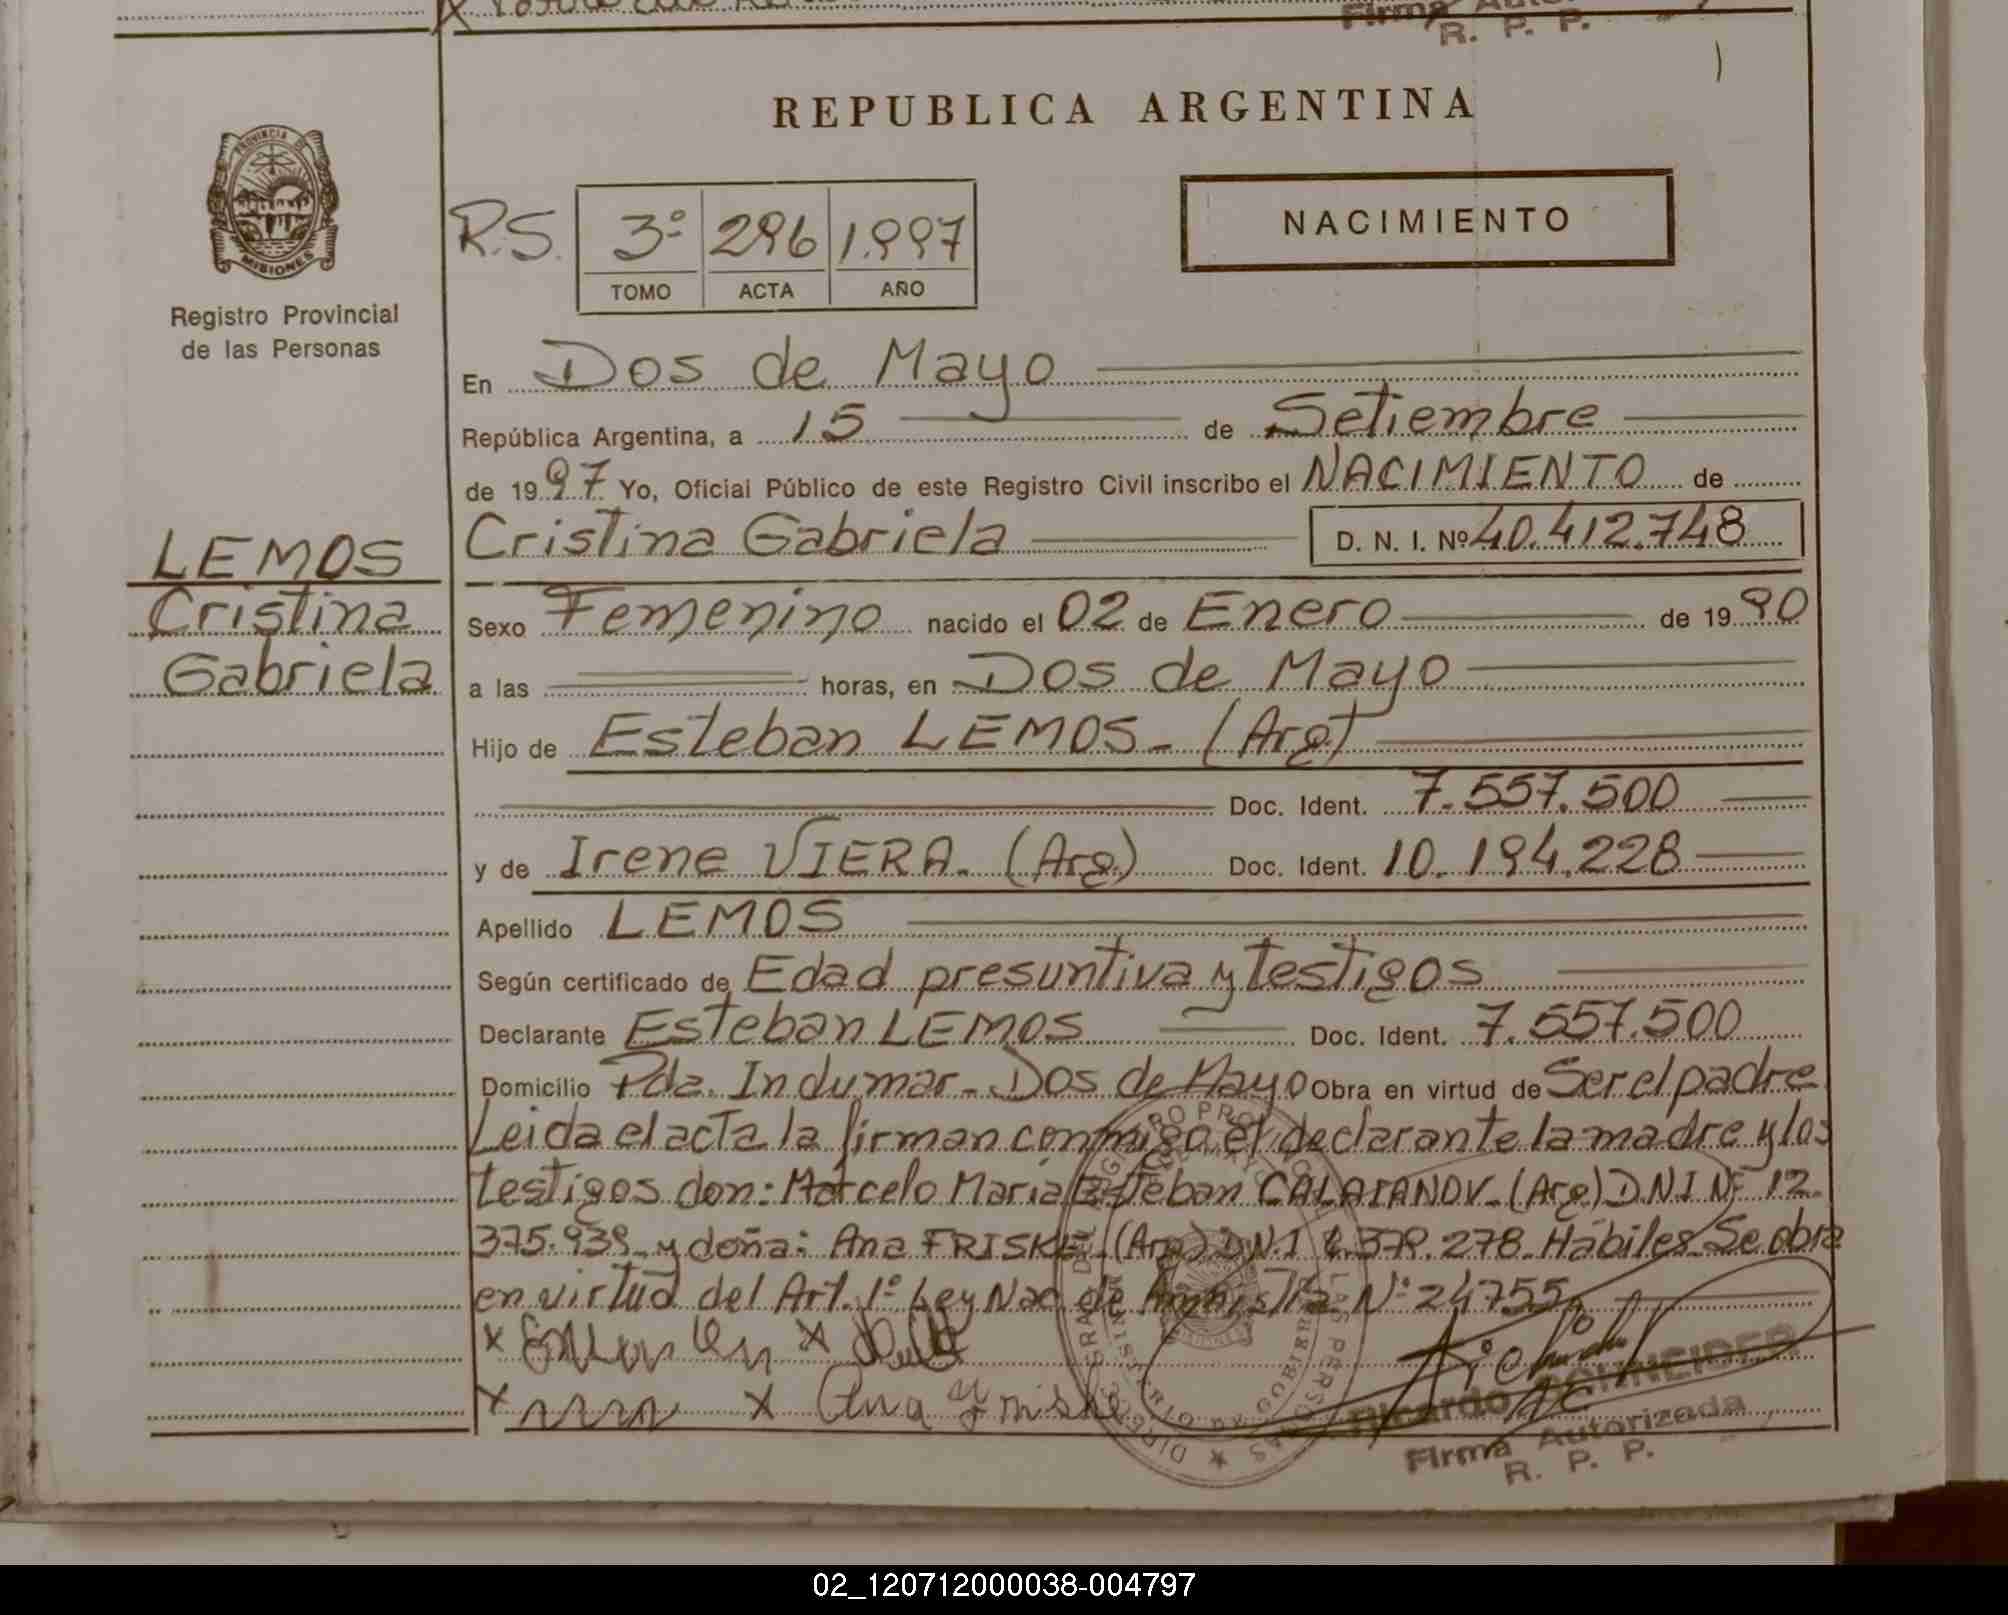 Firma
R. P. P.
REPUBLICA ARGENTINA
PROVINCIA DE
MISIONES
Registro Provincial
de las Personas
R.S. 3º 296 1.997
TOMO ACTA AÑO
NACIMIENTO
En Dos de Mayo
República Argentina, a 15 de Setiembre
de 1997 Yo, Oficial Público de este Registro Civil inscribo el NACIMIENTO de
Cristina Gabriela D. N. I. Nº 40.412.748
LEMOS
Cristina
Gabriela
Sexo Femenino nacido el 02 de Enero de 1990
a las horas, en Dos de Mayo
Hijo de Esteban LEMOS - (Arg)
Doc. Ident. 7.557.500
y de Irene VIERA. (Arg.) Doc. Ident. 10.194.228
Apellido LEMOS
Según certificado de Edad presuntiva y testigos
Declarante Esteban LEMOS Doc. Ident. 7.557.500
Domicilio Pda. Indumar - Dos de Mayo Obra en virtud de Ser el padre
Leida el acta la firman conmigo el declarante la madre y los
testigos don: Marcelo Maria Esteban (Arg) D.N.I Nº 12.
375.939 y doña: Ana FRISKE (Arg) D.N.I 379.278. Hábiles Se obra
en virtud del Art. 1º Ley Nac. de Amnistía Nº 24755
x x
x x Ana Friske
Ricardo SCHNEIDER
Firma Autorizada
R. P. P.
02_120712000038-004797